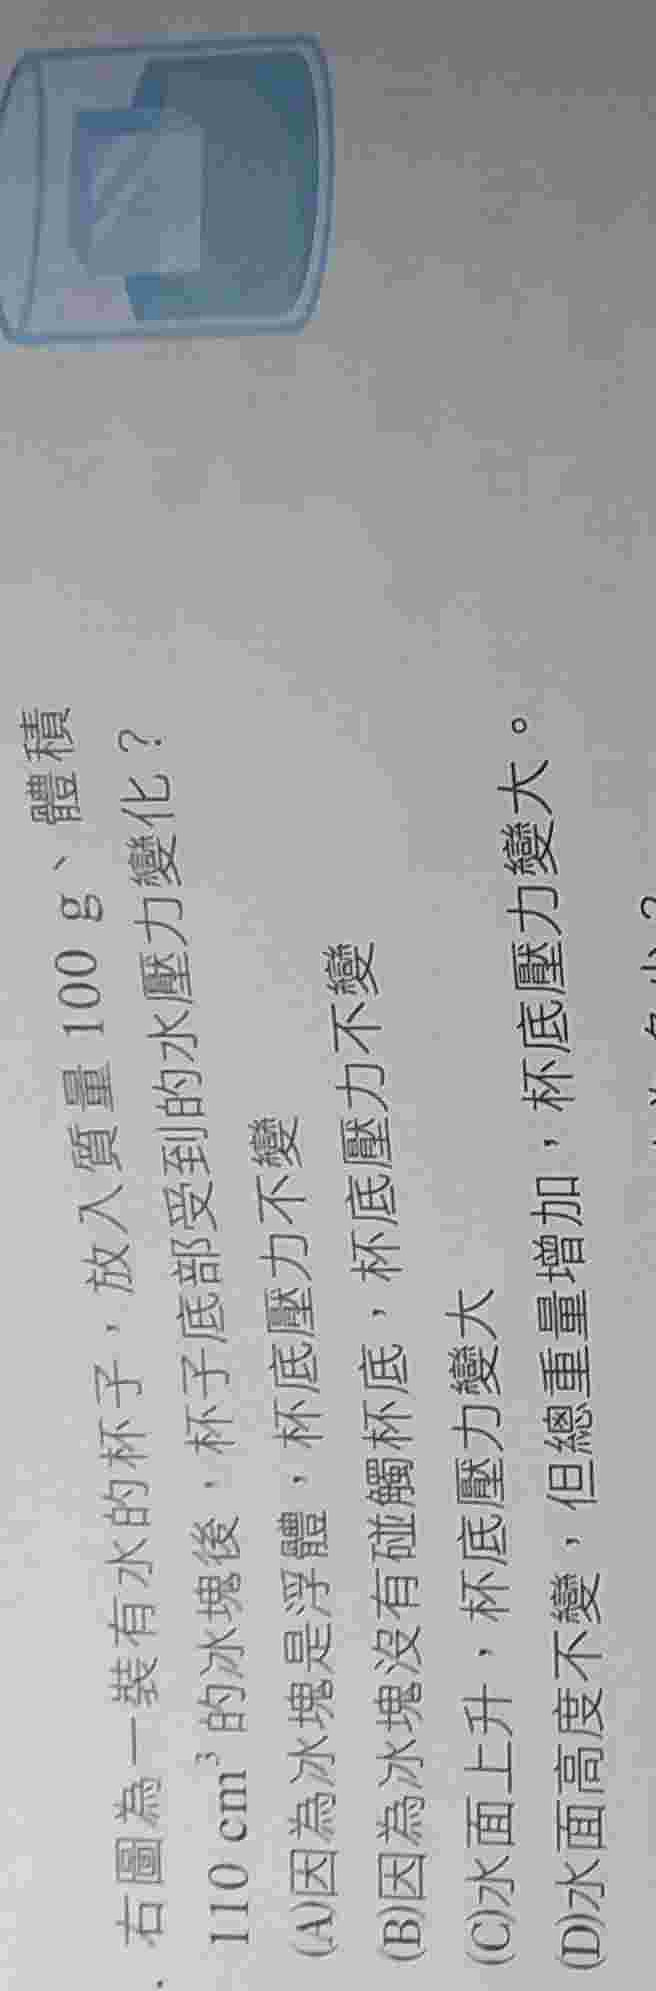 . 右圖為一裝有水的杯子，放入質量 100 g、體積
110 cm³ 的冰塊後，杯子底部受到的水壓力變化？
(A)因為冰塊是浮體，杯底壓力不變
(B)因為冰塊沒有碰觸杯底，杯底壓力不變
(C)水面上升，杯底壓力變大
(D)水面高度不變，但總重量增加，杯底壓力變大。